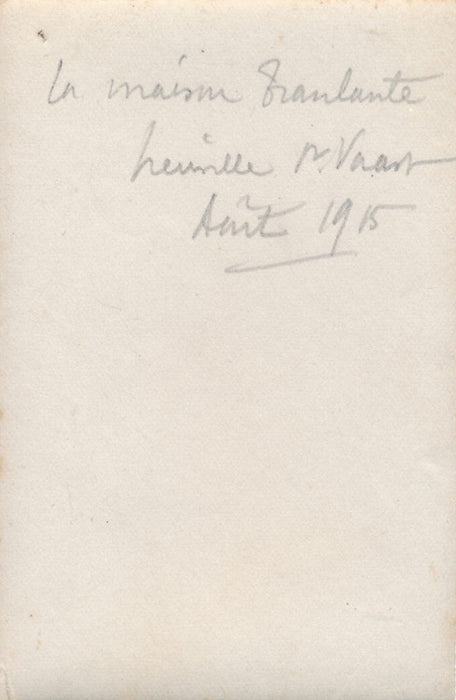 La maison branlante
Neuville St Vaast
Août 1915